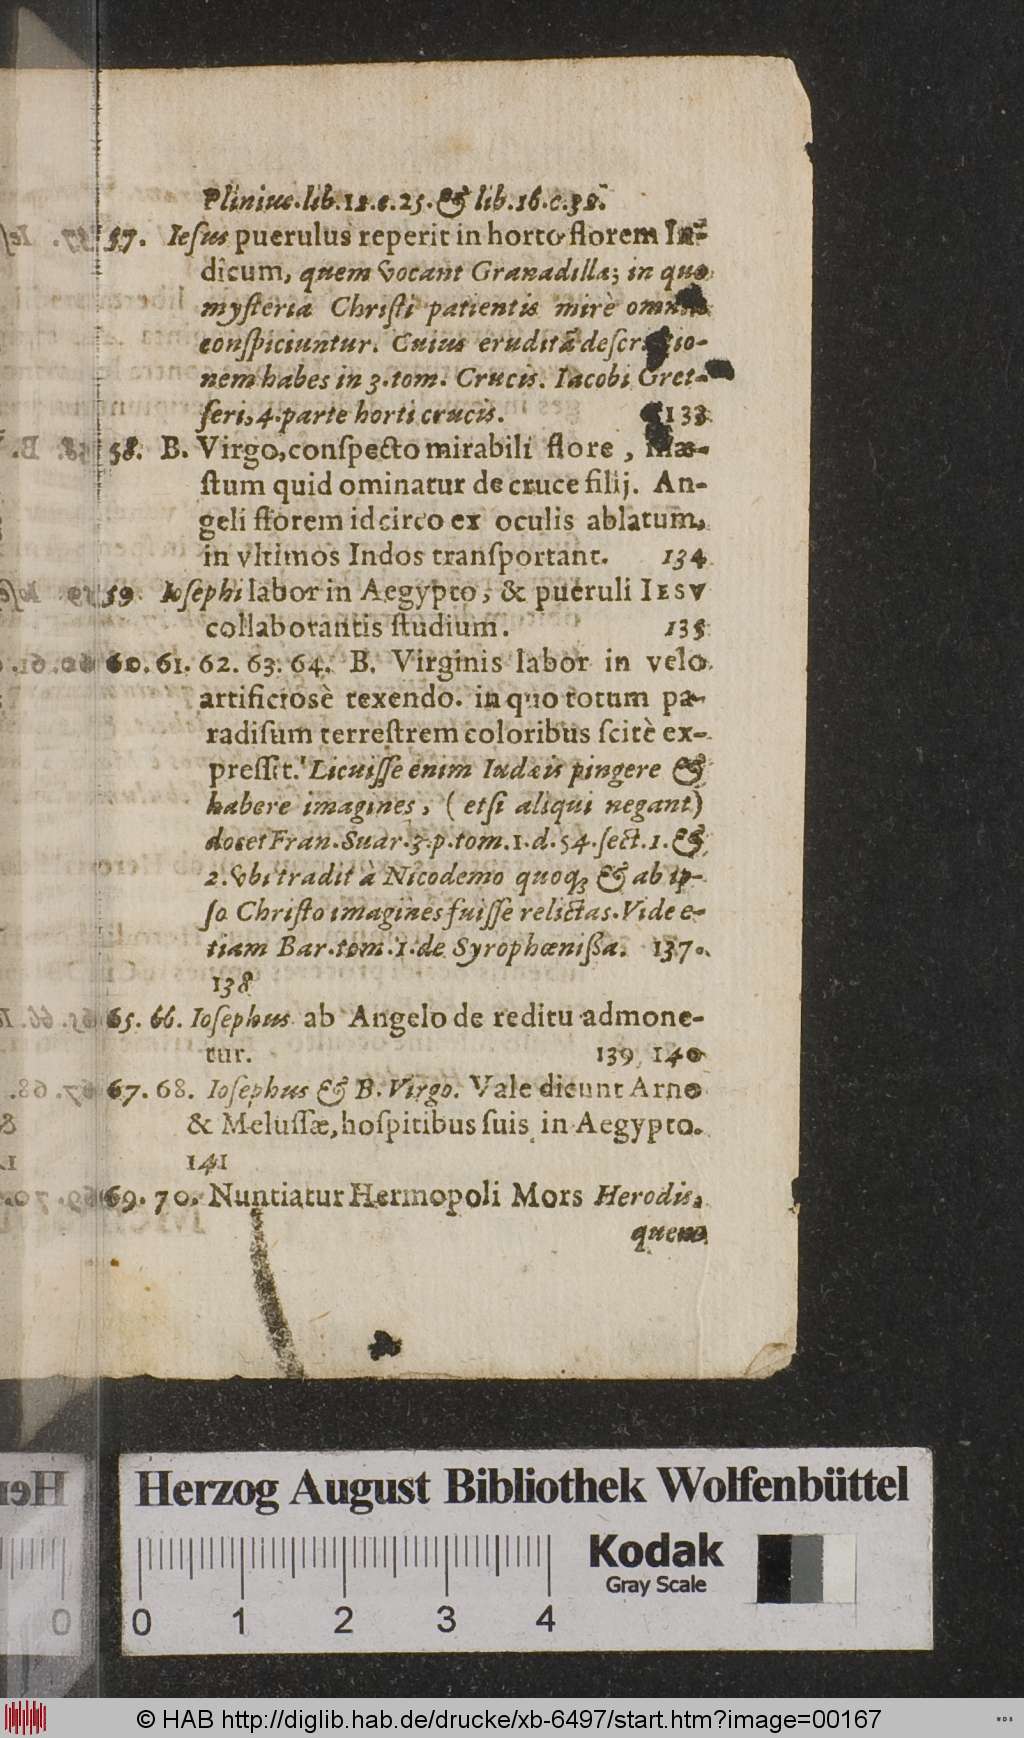 Plinius.lib.12.c.25.& lib.16.c.38.
57. Iesus puerulus reperit in horto florem In-
dicum, quem vocant Granadilla; in quo
mysteria Christi patientis mirè omnia
conspiciuntur. Cuius eruditã descriptio-
nem habes in 3. tom. Crucis. Iacobi Gret-
seri, 4. parte horti crucis. 133
58. B. Virgo, conspecto mirabili flore, mæ-
stum quid ominatur de cruce filij. An-
geli florem idcirco ex oculis ablatum,
in vltimos Indos transportant. 134
59. Iosephi labor in Aegypto, & pueruli IESV
collaborantis studium. 135
60. 61. 62. 63. 64. B. Virginis labor in velo
artificiosè texendo. in quo totum pa-
radisum terrestrem coloribus scitè ex-
pressit. Licuisse enim Iudæis pingere &
habere imagines, (etsi aliqui negant)
docet Fran. Suar. 3. p. tom. 1. d. 54. sect. 1. &
2. vbi tradit à Nicodemo quoq; & ab ip-
so Christo imagines fuisse relictas. Vide e-
tiam Bar. tom. 1. de Syrophœnissa. 137.
138
65. 66. Iosephus ab Angelo de reditu admone-
tur. 139. 140
67. 68. Iosephus & B. Virgo. Vale dicunt Arno
& Melussæ, hospitibus suis in Aegypto.
141
69. 70. Nuntiatur Hermopoli Mors Herodis,
quem
Herzog August Bibliothek Wolfenbüttel
Kodak
Gray Scale
0 1 2 3 4
© HAB http://diglib.hab.de/drucke/xb-6497/start.htm?image=00167